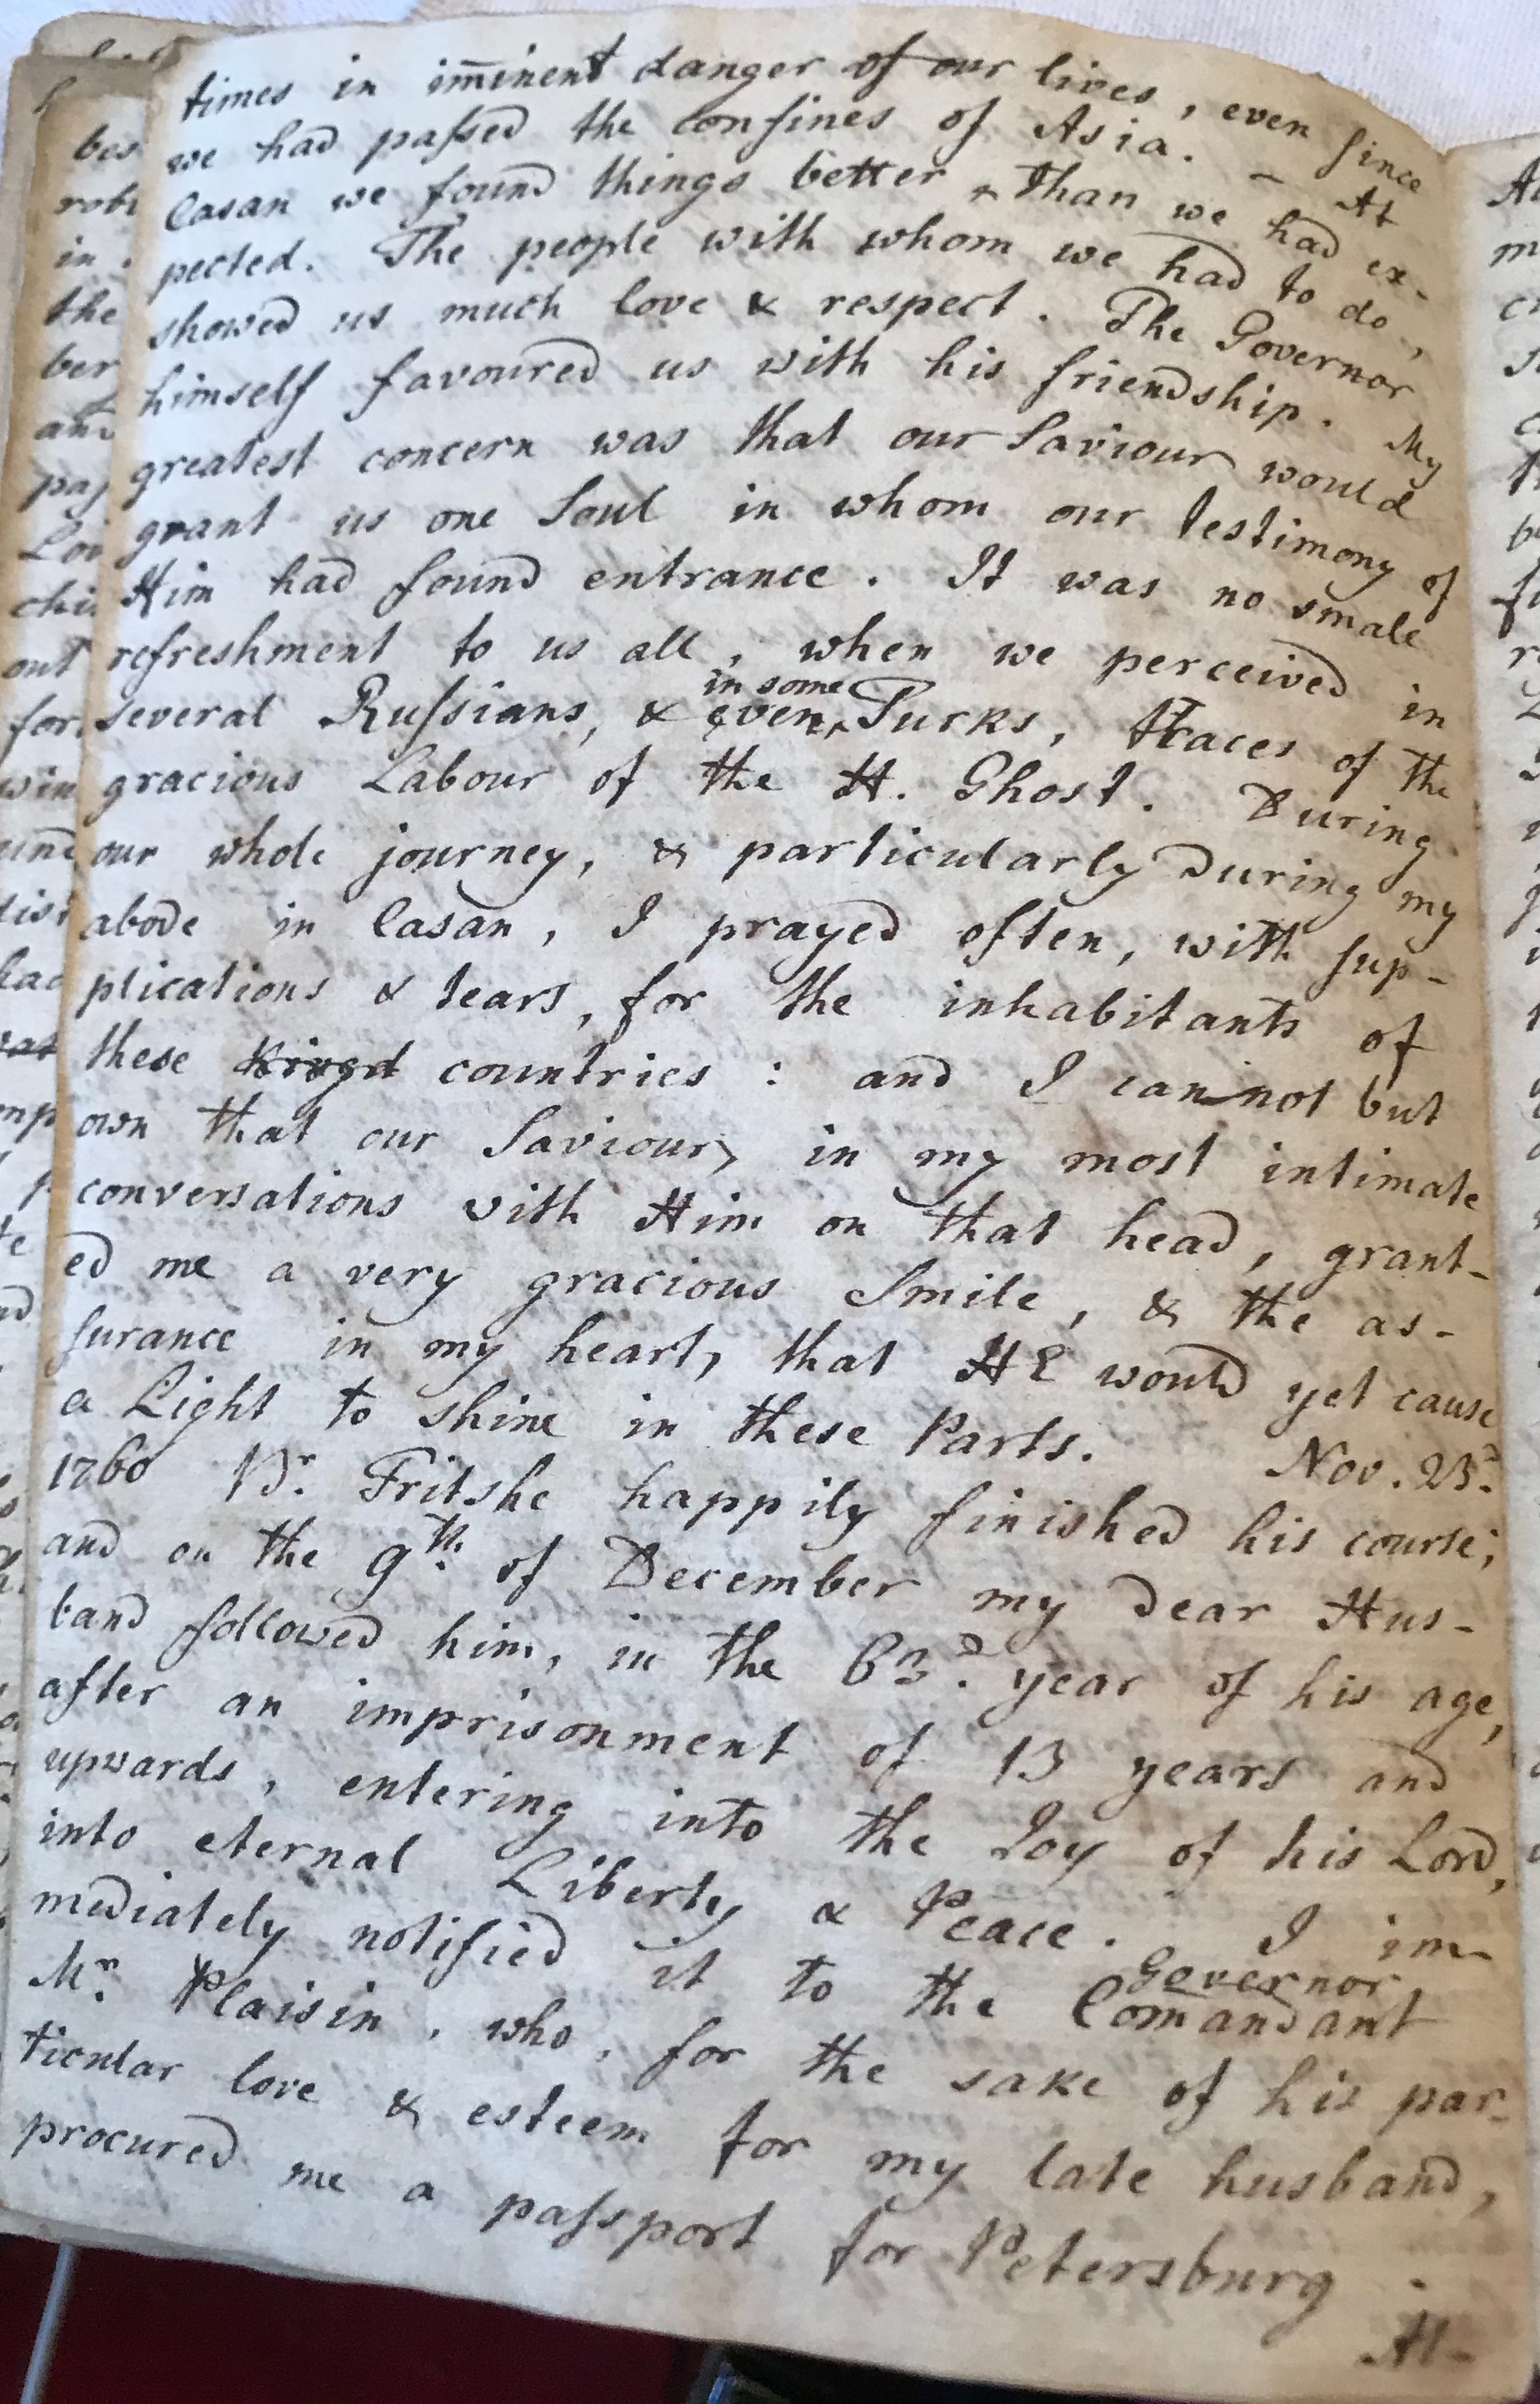 times in im̄inent danger of our lives, even since
we had passed the Confines of Asia. – At
Casan we found things better, than we had ex-
pected. The people with whom we had to do,
showed us much love & respect. The Governor
himself favoured us with his friendship. My
greatest concern was that our Saviour would
grant us one Soul in whom our testimony of
Him had found entrance. It was no small
refreshment to us all, when we perceived in
in some
several Russians, & even Turks, Traces of the
gracious Labour of the H. Ghost. During
our whole journey, & particularly during my
abode in Casan, I prayed often, with sup-
plications & tears, for the inhabitants of
these Kingd countries: and I cannot but
own that our Saviour, in my most intimate
conversations with Him on that head, grant-
ed me a very gracious Smile, & the as-
surance in my heart, that HE would yet cause
a Light to shine in these Parts. Nov. 23d.
1760 Br. Fritshe happily finished his course;
and on the 9th. of December my dear Hus-
band followed him, in the 63d. year of his age,
after an imprisonment of 13 years and
upwards, entering into the Joy of his Lord,
into eternal Liberty & Peace. I im-
Governor
mediately notified it to the Com̄andant
Mr. Plaisin, who, for the sake of his par-
ticular love & esteem for my late husband,
procured me a passport for Petersburg.
Al-
bes
robi
in
the
ber
and
pas
Lov
chi
out
for
win
und
disi
lac
mp